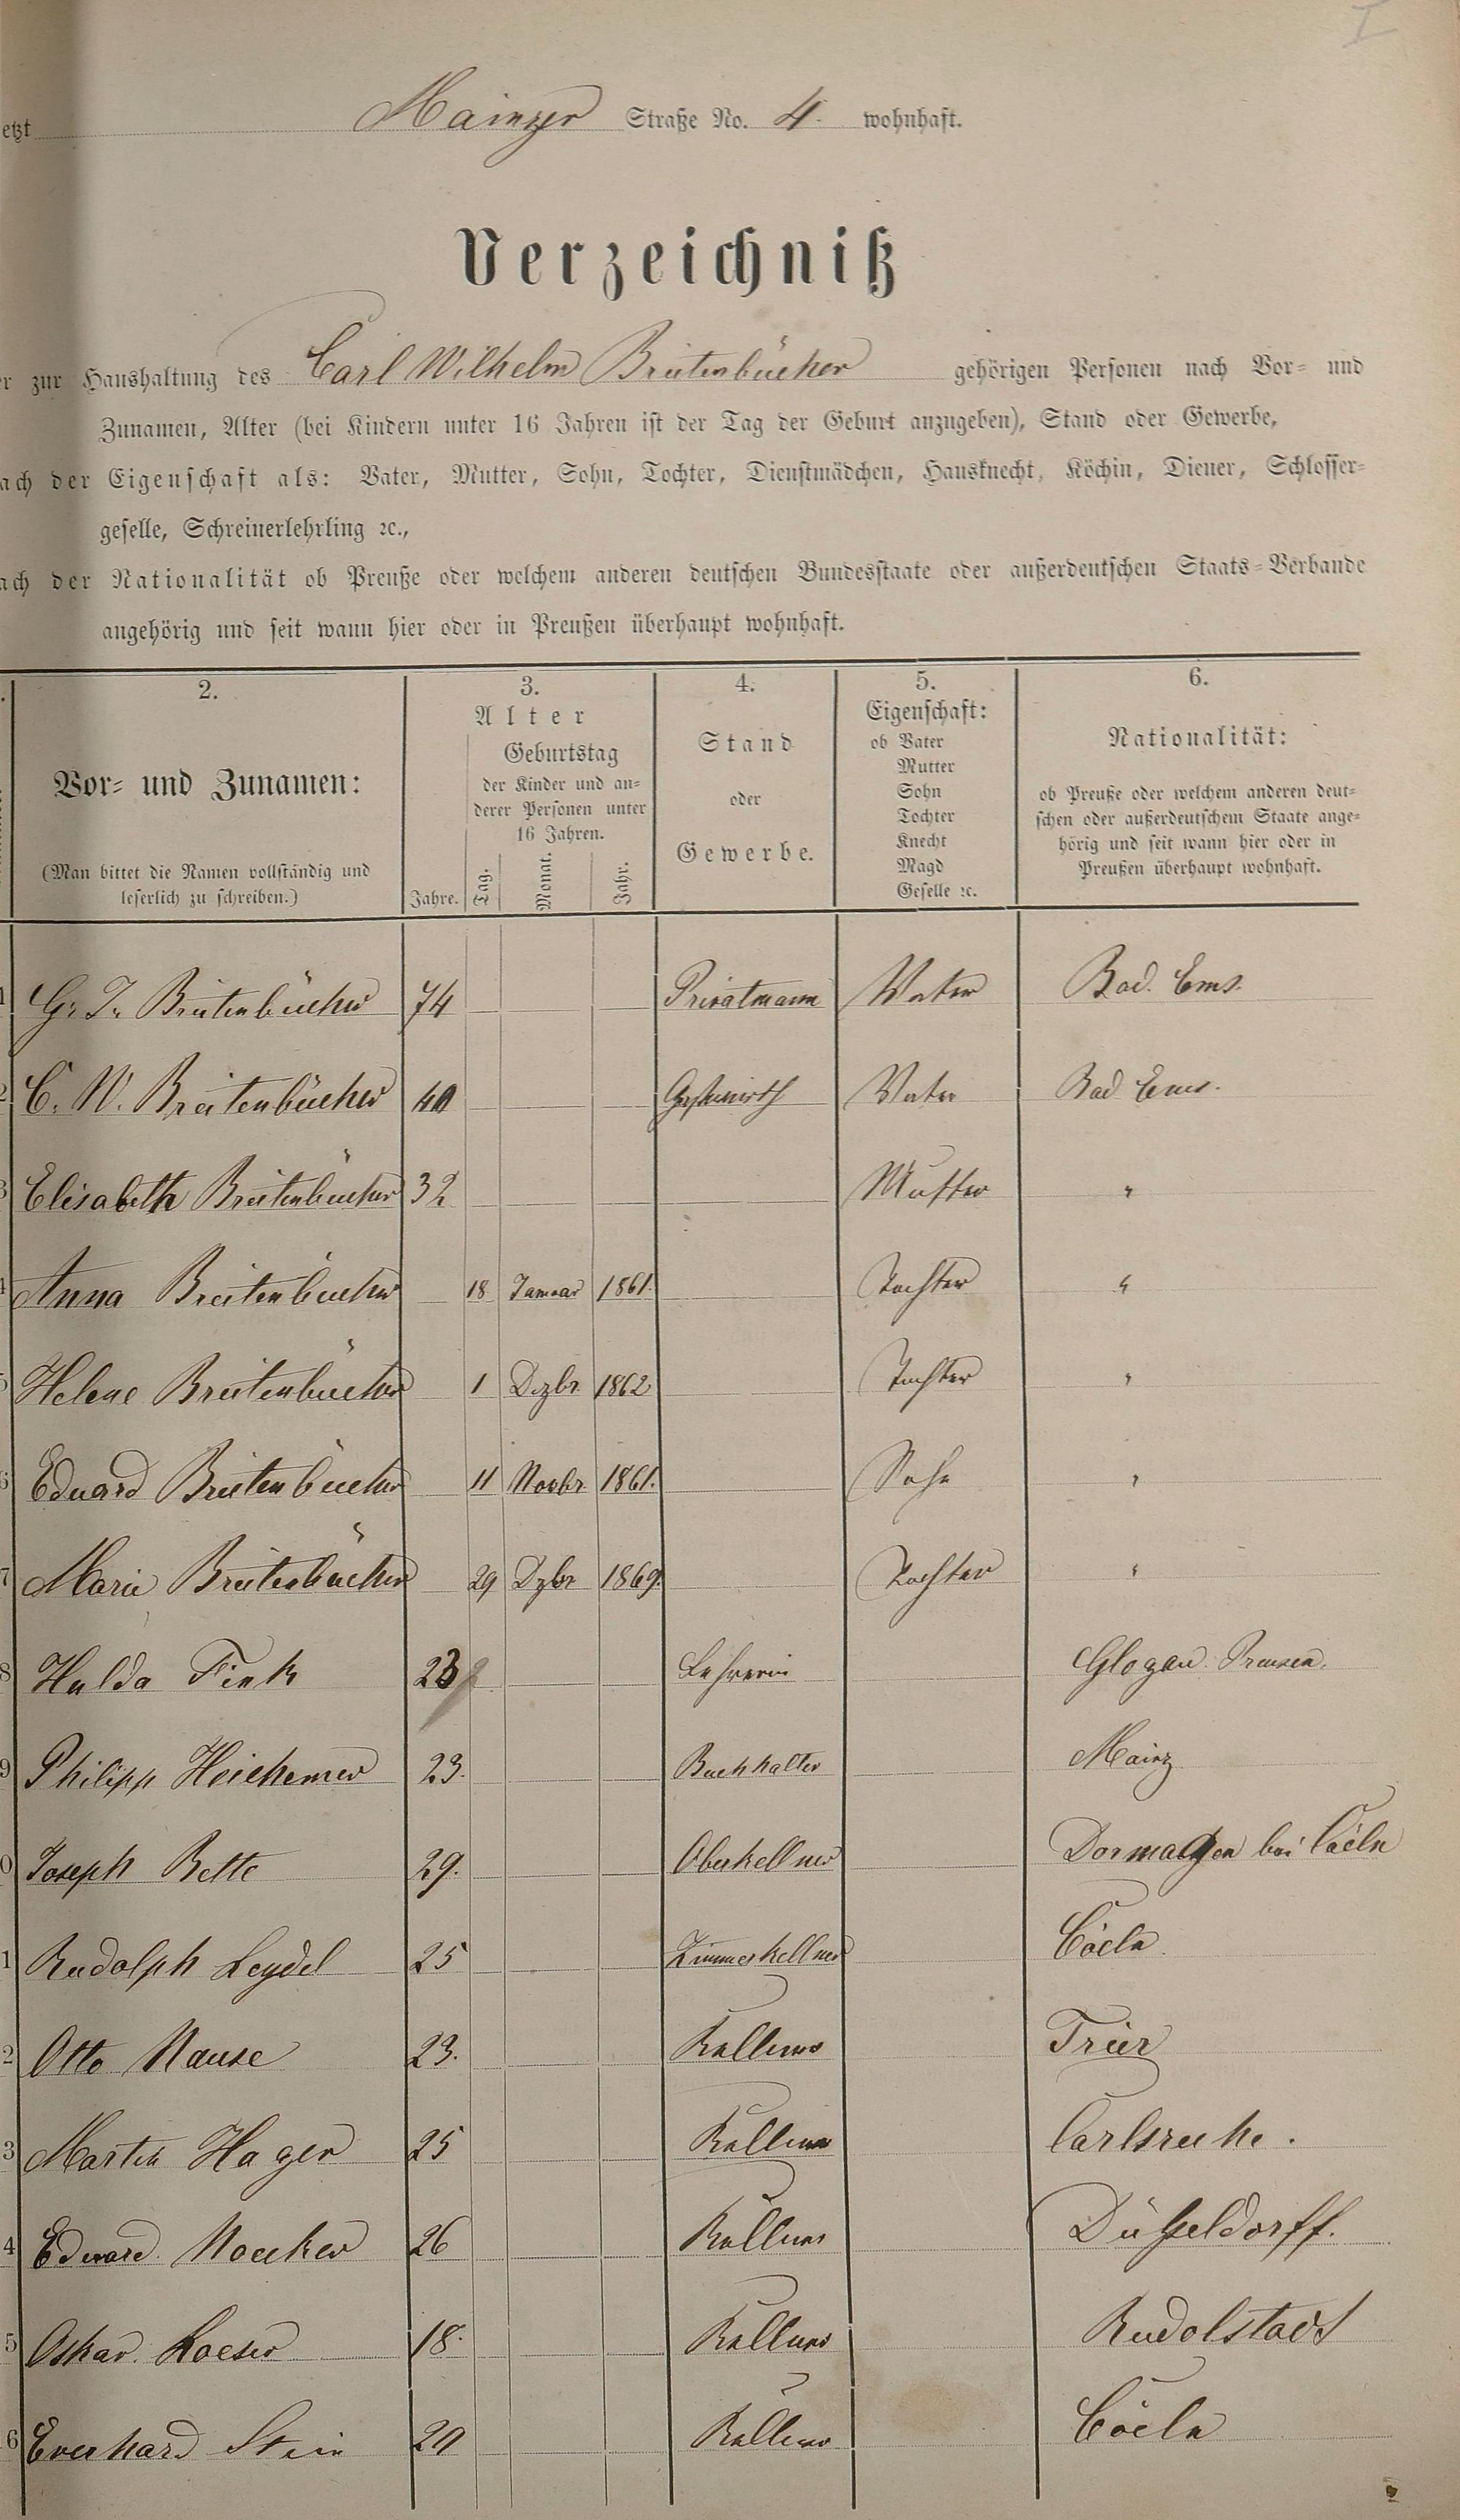 I
etzt Mainzer Straße No. 4. wohnhaft.
Verzeichniß
er zur Haushaltung des Carl Wilhelm Breitenbücher gehörigen Personen nach Vor- und
Zunamen, Alter (bei Kindern unter 16 Jahren ist der Tag der Geburt anzugeben), Stand oder Gewerbe,
ach der Eigenschaft als: Vater, Mutter, Sohn, Tochter, Dienstmädchen, Hausknecht, Köchin, Diener, Schlosser-
geselle, Schreinerlehrling ꝛc.,
ach der Nationalität ob Preuße oder welchem anderen deutschen Bundesstaate oder außerdeutschen Staats-Verbande
angehörig und seit wann hier oder in Preußen überhaupt wohnhaft.
2.
Vor- und Zunamen:
(Man bittet die Namen vollständig und
leserlich zu schreiben.)
3.
Alter
Jahre.
Geburtstag
der Kinder und an-
derer Personen unter
16 Jahren.
Tag.
Monat.
Jahr.
4.
Stand
oder
Gewerbe.
5.
Eigenschaft:
ob Vater
Mutter
Sohn
Tochter
Knecht
Magd
Geselle ꝛc.
6.
Nationalität:
ob Preuße oder welchem anderen deut-
schen oder außerdeutschem Staate ange-
hörig und seit wann hier oder in
Preußen überhaupt wohnhaft.
1 Breitenbücher 74 Privatmann Vater Bad. Ems.
2 C. W. Breitenbücher 40 Gastwirth Vater Bad Ems.
3 Elisabeth Breitenbücher 32 Mutter "
4 Anna Breitenbücher 18 Januar 1861. Tochter "
5 Helene Breitenbücher 1 Dezbr. 1862 Tochter "
6 Eduard Breitenbücher 11 Novbr. 1861. Sohn "
7 Marie Breitenbücher 29 Dzbr 1869. Tochter "
8 Hulda Fink 23 Lehrerin Glogau Preusen.
9 Philipp Heichemer 23. Buchhalter Mainz
0 Joseph Bette 29. Oberkellner Dormagen bei Cöeln
1 Rudolph Leydel 25 Zimmerkellner Cöeln
2 Otto Mause 23. Kellner Trier
3 Martin Hager 25 Kellner Carlsruhe.
4 Eduard 26 Kellner Düßeldorff.
5 Oskar Loeser 18. Kellner Rudolstadt
6 Everhard Stein 20 Kellner Cöeln